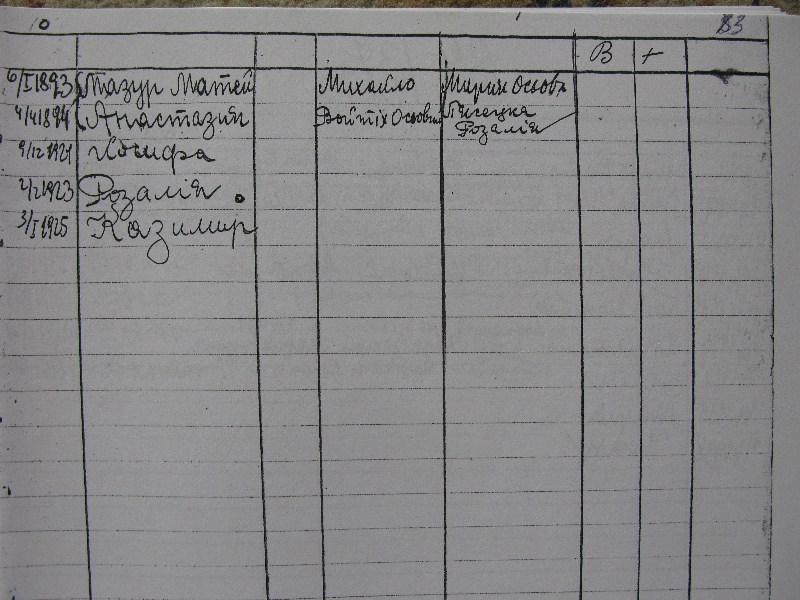 10 83
В +
6/I 1893 Мазур Матей Михайло Марія Особа
4/4 1894 Анастазия Войтіх Особа Лисецка
Розалія
9/12 1921 Йосифа
2/2 1923 Розалія
3/I 1925 Казимир